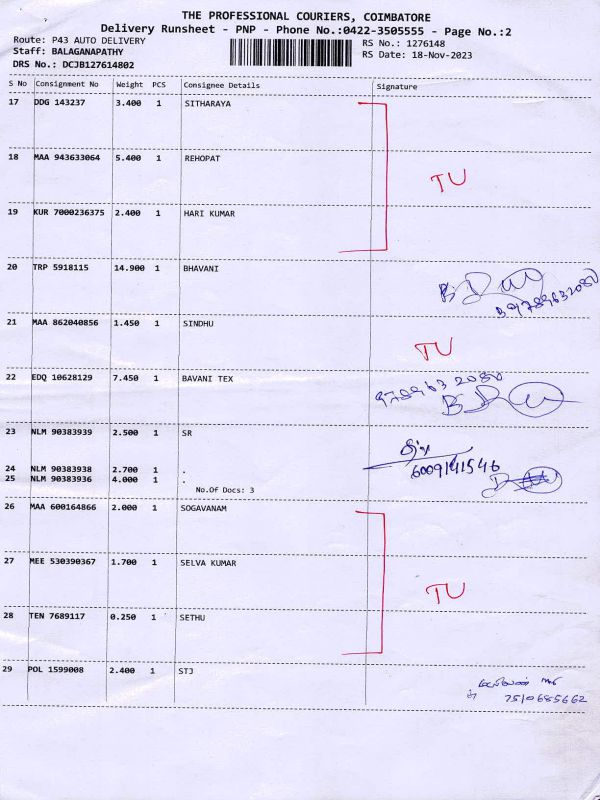 THE PROFESSIONAL COURIERS, COIMBATORE
Delivery Runsheet - PNP - Phone No.:0422-3505555 - Page No.:2
Route: P43 AUTO DELIVERY RS No.: 1276148
Staff: BALAGANAPATHY RS Date: 18-Nov-2023
DRS No.: DCJB127614802
S No Consignment No Weight PCS Consignee Details Signature
17 DDG 143237 3.400 1 SITHARAYA
18 MAA 943633064 5.400 1 REHOPAT
TU
19 KUR 7000236375 2.400 1 HARI KUMAR
20 TRP 5918115 14.900 1 BHAVANI
9789632080
21 MAA 862040856 1.450 1 SINDHU
TU
22 EDQ 10628129 7.450 1 BAVANI TEX
9789632080
23 NLM 90383939 2.500 1 SR
24 NLM 90383938 2.700 1 .
6009141546
25 NLM 90383936 4.000 1 .
No.Of Docs: 3
26 MAA 600164866 2.000 1 SOGAVANAM
27 MEE 530390367 1.700 1 SELVA KUMAR
TU
28 TEN 7689117 0.250 1 SETHU
29 POL 1599008 2.400 1 STJ
7510685662